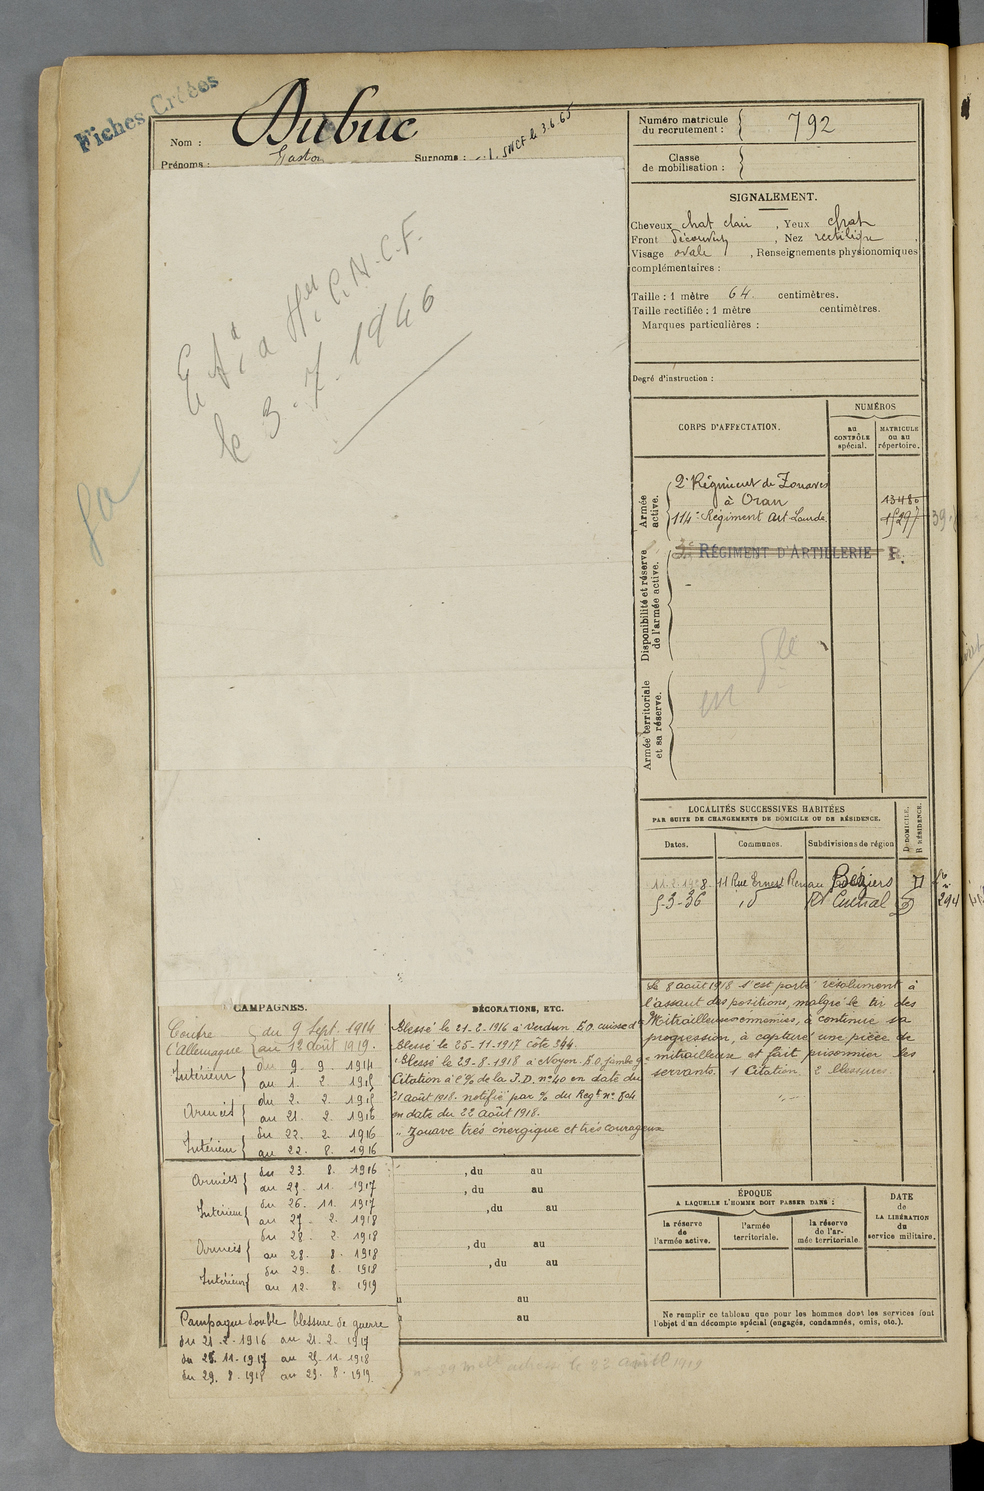 Fiches Créées
Nom : Dubuc
Prénoms : Gaston Surnoms : SNCF le 3.6.65
Numéro matricule du recrutement : 792
Classe de mobilisation :
SIGNALEMENT.
Cheveux chat clair, Yeux chat
Front découvert, Nez rectiligne
Visage ovale, Renseignements physionomiques
complémentaires :
Taille : 1 mètre 64. centimètres.
Taille rectifiée : 1 mètre centimètres.
Marques particulières :
Degré d'instruction :
S.N.C.F.
le 3.7.1946
CORPS D'AFFECTATION.
NUMÉROS
AU CONTRÔLE spécial.
MATRICULE OU AU répertoire.
Armée active.
2e Régiment de Zouaves
à Oran
13480
114e Régiment Art. Lourde
RÉGIMENT D'ARTILLERIE
R.
Disponibilité et réserve de l'armée active.
Armée territoriale et sa réserve.
LOCALITÉS SUCCESSIVES HABITÉES
PAR SUITE DE CHANGEMENTS DE DOMICILE OU DE RÉSIDENCE.
D. DOMICILE. R. RÉSIDENCE.
Dates.
Communes.
Subdivisions de région
11 Rue Ernest Renan Béziers D
5-3-36 id Rt Central D
294
CAMPAGNES.
Contre l'Allemagne
du 9 Sept. 1914
au 12 août 1919.
Intérieur
du 9. 9. 1914
au 1. 2. 1915
Armées
du 2. 2. 1915
au 21. 2. 1916
Intérieur
du 22. 2. 1916
au 22. 8. 1916
Armées
du 23. 8. 1916
au 25. 11. 1917
Intérieur
du 26. 11. 1917
au 27. 2. 1918
Armées
du 28. 2. 1918
au 28. 8. 1918
Intérieur
du 29. 8. 1918
au 12. 8. 1919
Campagne double blessure de guerre
du 21.2.1916 au 21.2.1917
du 25.11.1917 au 25.11.1918
du 29.8.1918 au 29.8.1919
DÉCORATIONS, ETC.
Blessé le 21-2-1916 à Verdun E.O cuisse d
Blessé le 25-11-1917 côte 344.
Blessé le 29-8-1918 à Noyon E.O jambe g
Citation à l'% de la I.D. n° 40 en date du
21 août 1918. notifié par % du Regt n° 804
en date du 22 août 1918.
"Zouave très énergique et très courageux
Le 8 août 1918 s'est porté résolument à
l'assaut des positions, malgré le tir des
Mitrailleuses ennemies, a continué sa
progression, a capturé une pièce de
mitrailleuse et fait prisonnier les
servants. 1 Citation 2 blessures.
, du au
, du au
, du au
, du au
, du au
au
au
ÉPOQUE
A LAQUELLE L'HOMME DOIT PASSER DANS :
la réserve de l'armée active.
l'armée territoriale.
la réserve de l'armée territoriale.
DATE de LA LIBÉRATION du service militaire.
Ne remplir ce tableau que pour les hommes dont les services font
l'objet d'un décompte spécial (engagés, condamnés, omis, etc.).